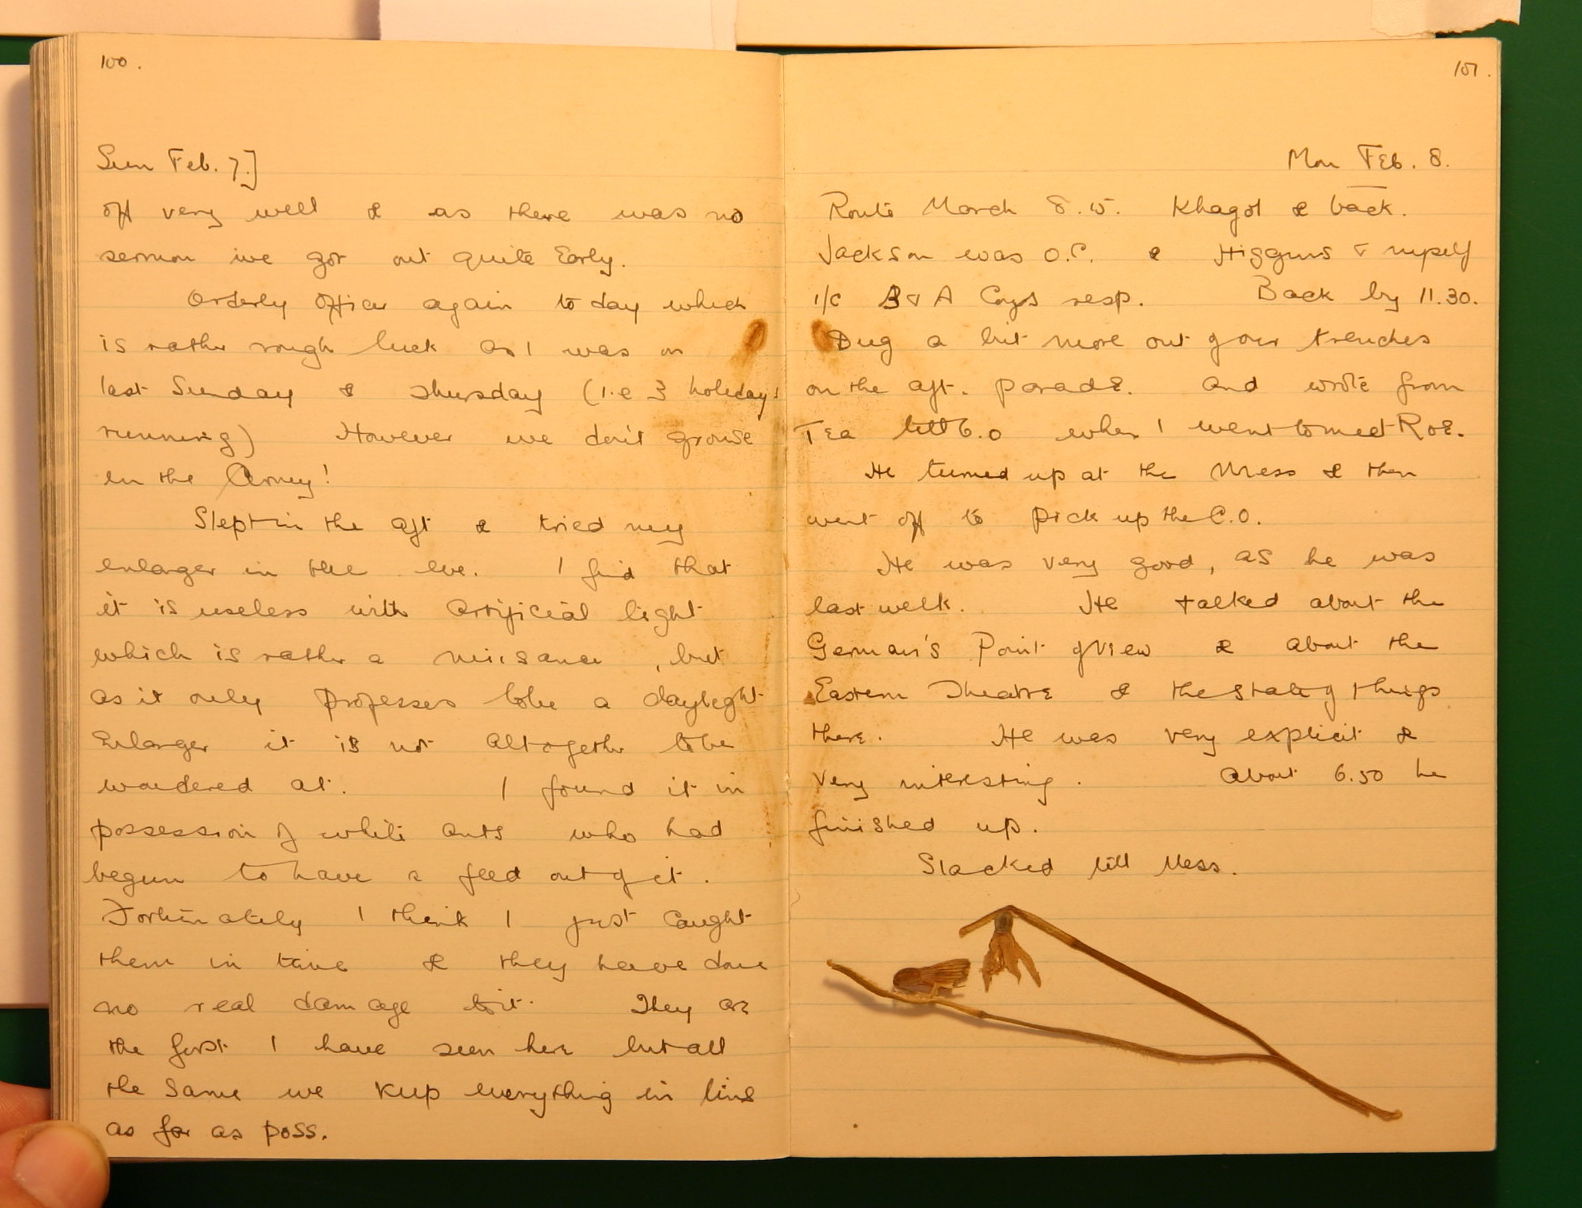 100.
Sun Feb. 7.]
off very well & as there was no
sermon we got out quite Early.
Orderly Officer again to day which
is rather rough luck as I was on
last Sunday & Thursday (i.e 3 holidays
running) However we don't grouse
in the Army!
Slept in the aft & tried my
enlarger in the eve. I find that
it is useless with artificial light
which is rather a nuisance, but
as it only professes to be a daylight
Enlarger it is not altogether to be
wondered at. I found it in
possession of white ants who had
begun to have a feed out of it.
Fortunately I think I just caught
them in time & they have done
no real damage to it. They are
the first I have seen here but all
the same we keep everything in tins
as far as poss.
101.
Mon Feb. 8.
Route March 8.15. Khagol & back.
Jackson was O.C. & Higgins & myself
i/c B & A Coys resp. Back by 11.30.
Dug a bit more out of our trenches
on the aft. parade. and wrote from
Tea till 6.0 when I went to meet Roe.
He turned up at the Mess & then
went off to pick up the C.O.
He was very good, as he was
last week. He talked about the
German's Point of View & about the
Eastern Theatre & the state of things
there. He was very explicit &
very interesting. About 6.50 he
finished up.
Slacked till Mess.